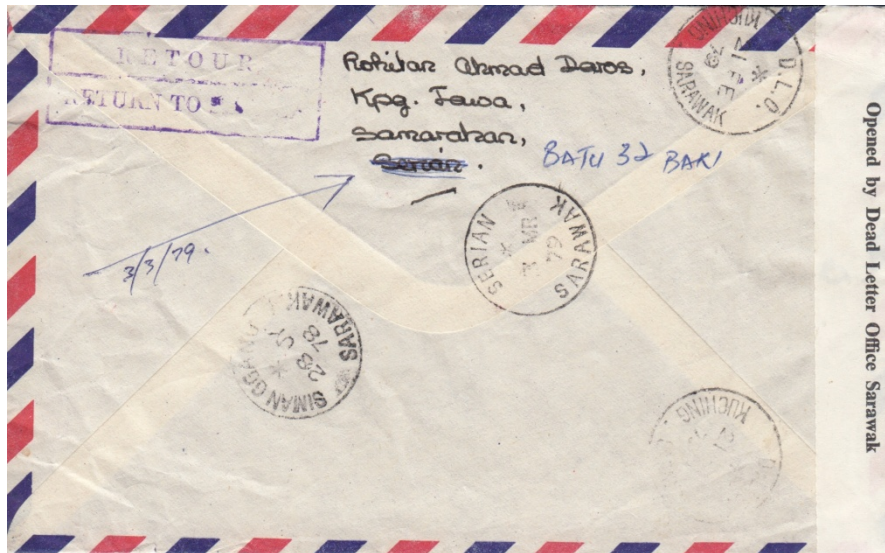 RETOUR
RETURN TO
Rohitan Ahmad Daros,
Kpg. Jawa,
Samarahan,
Serian.
BATU 32 BAKI
3/3/79.
D.L.O.
KUCHING
SARAWAK
SERIAN
3 MR
79
SARAWAK
SIMANGGANG
28 JY
78
SARAWAK
KUCHING
Opened by Dead Letter Office Sarawak